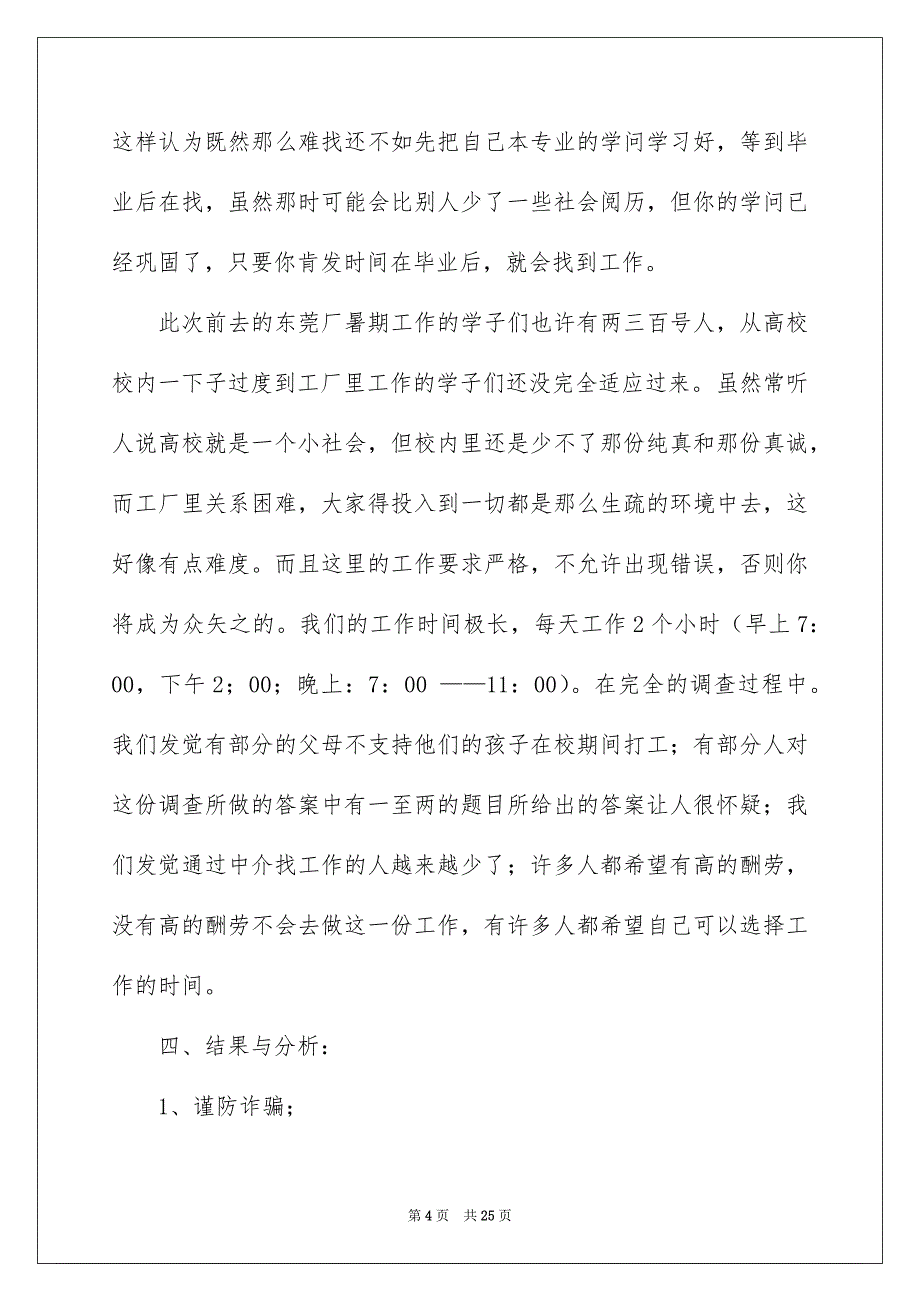 这样认为既然那么难找还不如先把自己本专业的学问学习好，等到毕
业后在找，虽然那时可能会比别人少了一些社会阅历，但你的学问已
经巩固了，只要你肯发时间在毕业后，就会找到工作。
此次前去的东莞厂暑期工作的学子们也许有两三百号人，从高校
校内一下子过度到工厂里工作的学子们还没完全适应过来。虽然常听
人说高校就是一个小社会，但校内里还是少不了那份纯真和那份真诚，
而工厂里关系困难，大家得投入到一切都是那么生疏的环境中去，这
好像有点难度。而且这里的工作要求严格，不允许出现错误，否则你
将成为众矢之的。我们的工作时间极长，每天工作2个小时（早上7：
00，下午2；00；晚上：7：00 ——11：00）。在完全的调查过程中。
我们发觉有部分的父母不支持他们的孩子在校期间打工；有部分人对
这份调查所做的答案中有一至两的题目所给出的答案让人很怀疑；我
们发觉通过中介找工作的人越来越少了；许多人都希望有高的酬劳，
没有高的酬劳不会去做这一份工作，有许多人都希望自己可以选择工
作的时间。
四、结果与分析：
1、谨防诈骗；
第 4 页 共 25 页